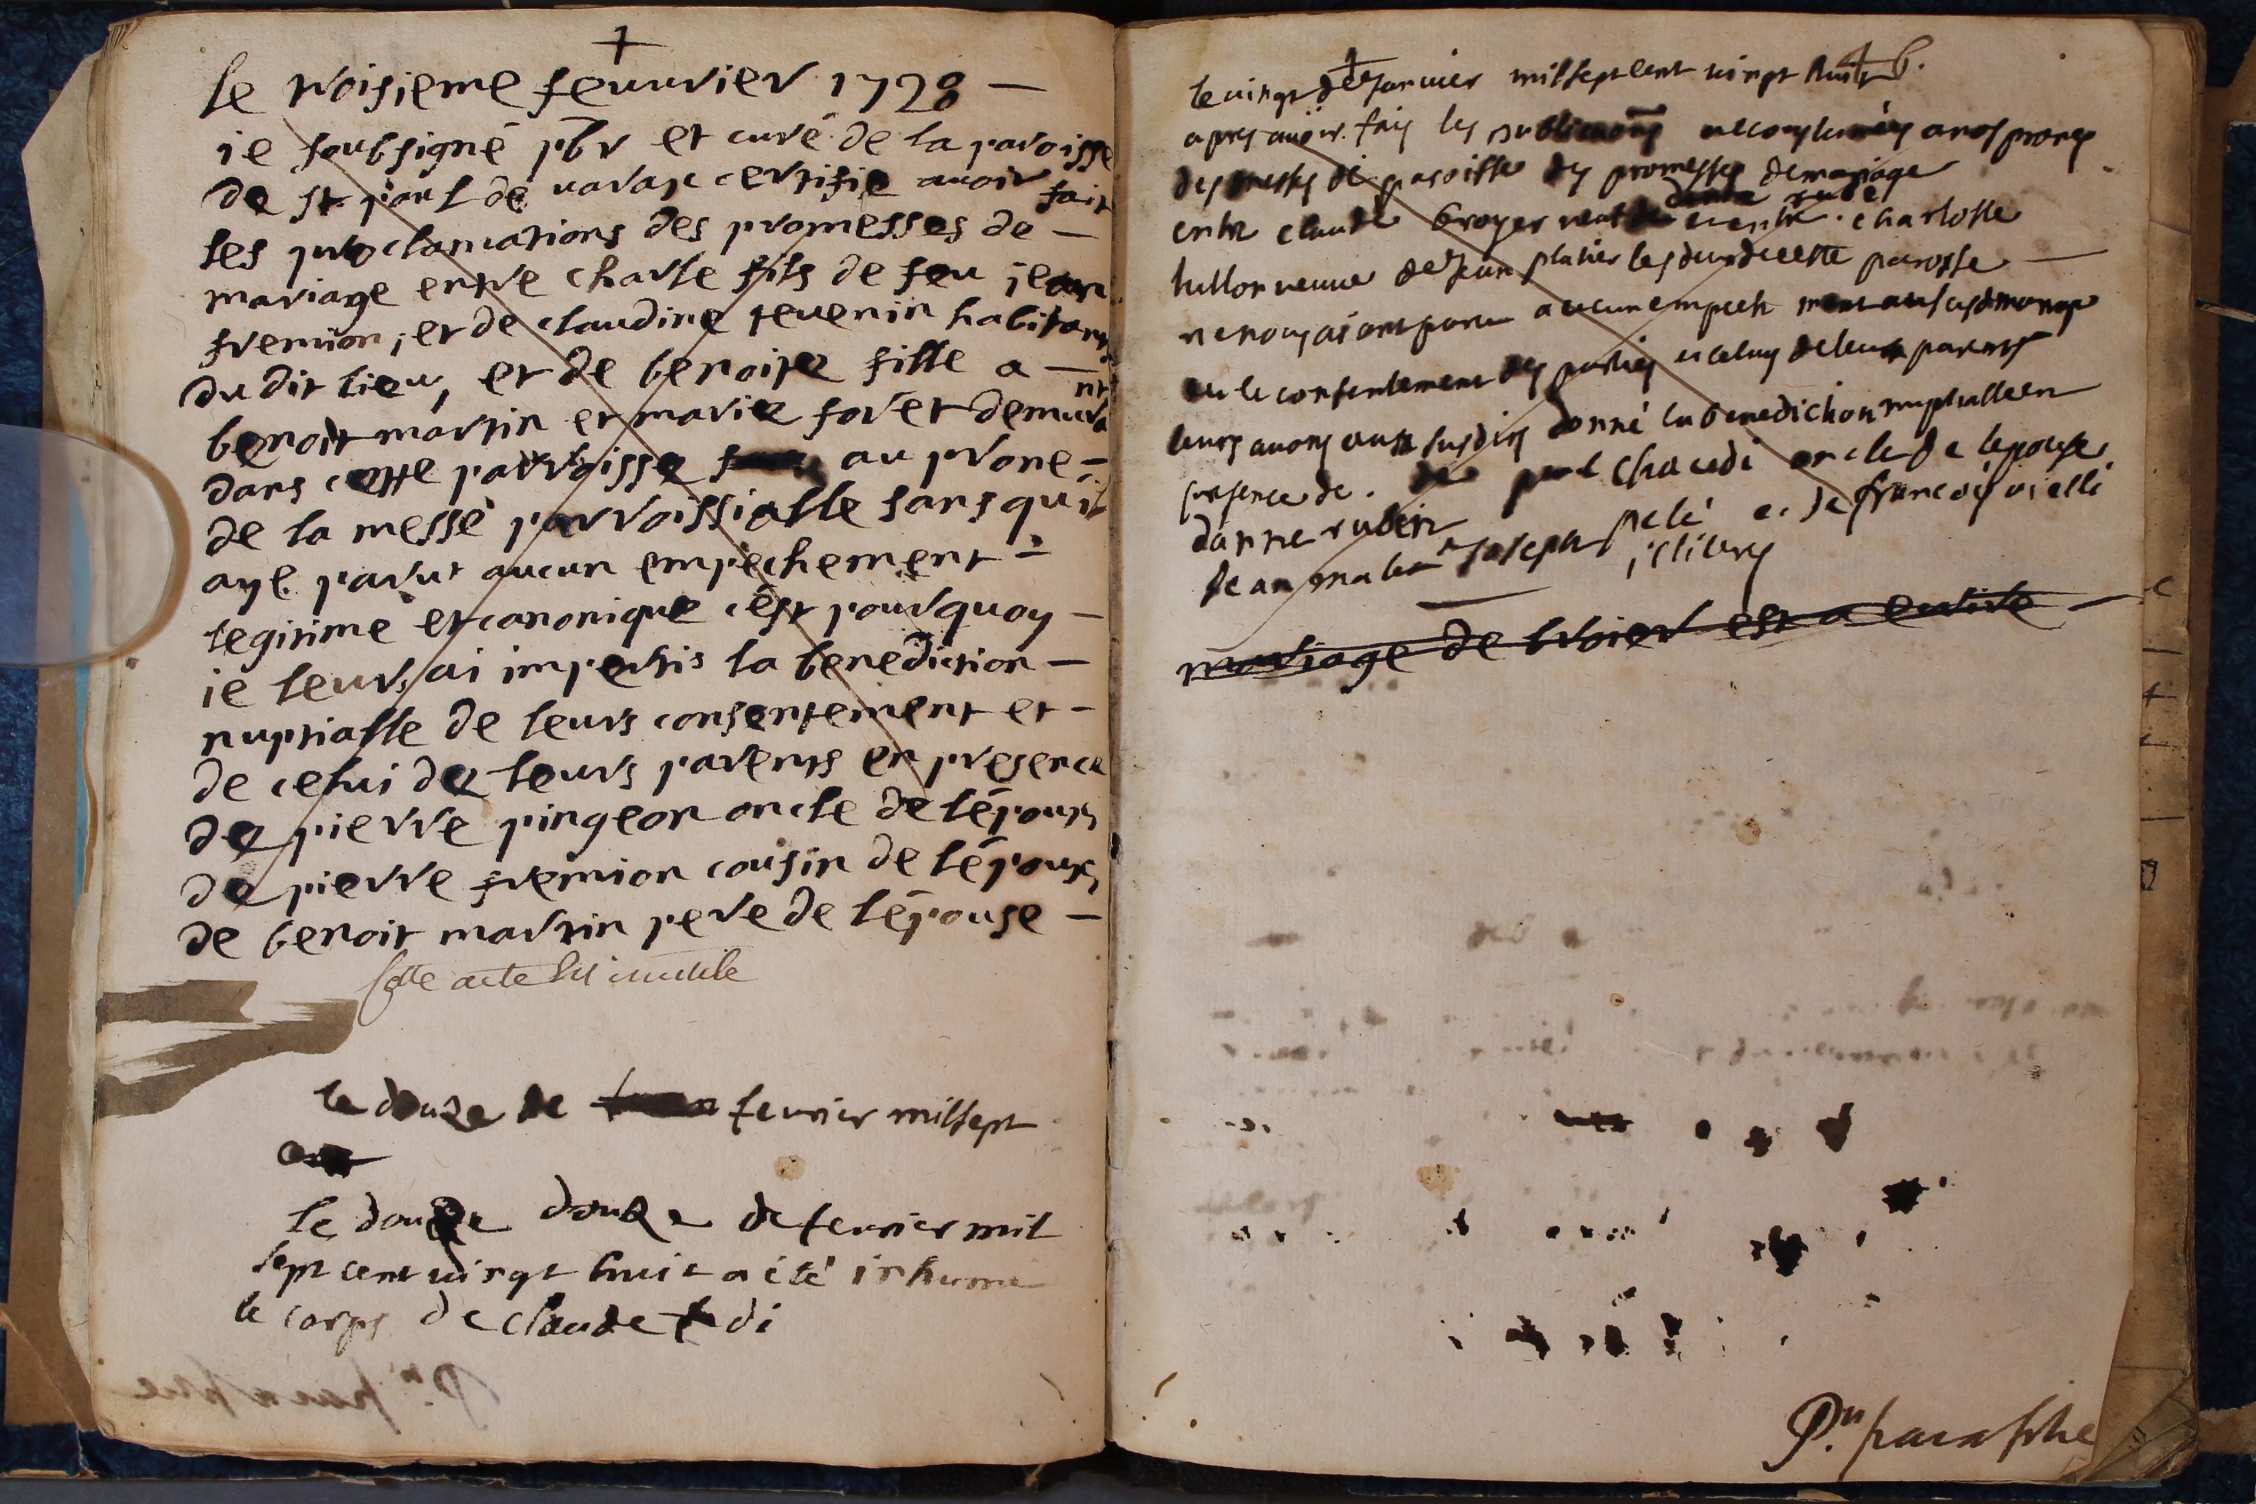 le troisieme feuurier 1728 —
ie soubsigné pbr et curé de la paroisse
de st paul de uarax certifie auoir fait
les proclamations des promesses de —
mariage entre charle fils de feu jean
fremion, et de claudine teuenin habitant
du dit lieu, et de benoite fille a —
benoit martin et marie foret demurant
dans cette parroisse au prone —
de la messe parroissialle sans qu'il
aye parut aucun empechement —
legitime et canonique cest pourquoy —
ie leurs ai impertis la benediction —
nuptialle de leurs consentement et —
de celui de leurs parents en presence
de pierre pingeon oncle de lépoux,
de pierre fremion cousin de lépoux,
de benoit martin pere de lépouse —
Cette acte est inutile
le douze de feurier mil sept
le douze douze de feurier mil
sept cent uingt huit a été inhumé
le corps de claude di
le uingt de januier mil sept cent uingt huit
apres auoir fais les publications accoutumées a nos prones
des messes de paroisse des promesses de mariage
entre claude broyer ueuf de danne rude et entre charlotte
tullon ueuue de jean platier les deux de cette paroisse —
ne nous aiant paru aucun empechement au susd mariage
ou le consentement des parties et celuy de leurs parents
leurs auons aux susdits donné la benediction nuptialle en
presence de paul chacedi oncle de lepouse
danne rubin
jean joseph pelé et de francois uielli
illiteres
mariage de brier est a ecrire —
P.n paraphe